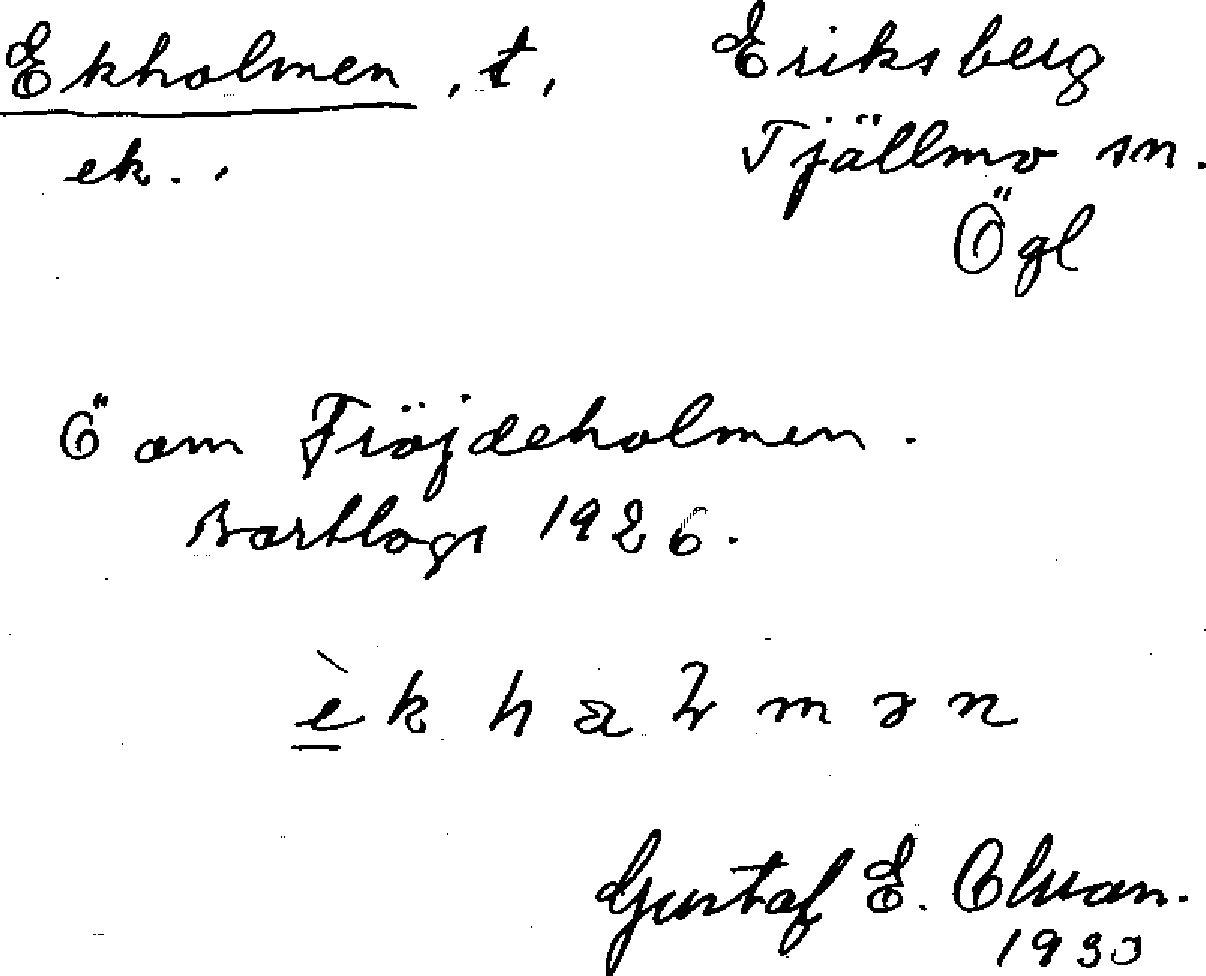 Ekholmen, t,
ek.,
Eriksberg
Tjällmo sn.
Ögl
Ö om Fröjdeholmen.
Bortlogs 1926.
Gustaf E.
1930